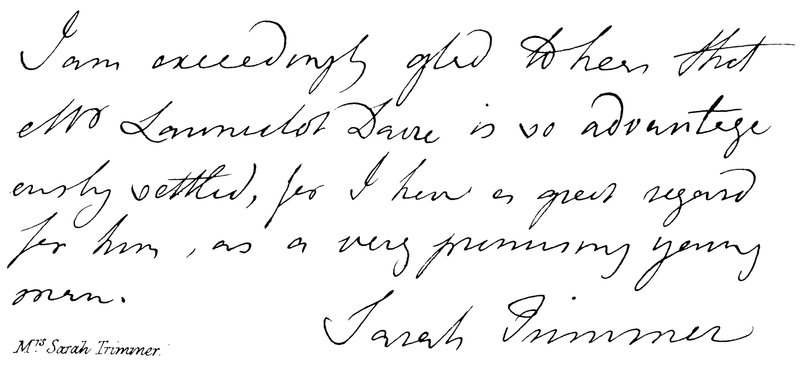 I am exceedingly glad to hear that
Mr Launcelot Dacre is so advantage
ously settled, for I have a great regard
for him, as a very promising young
man.
Sarah Trimmer
Mrs Sarah Trimmer.